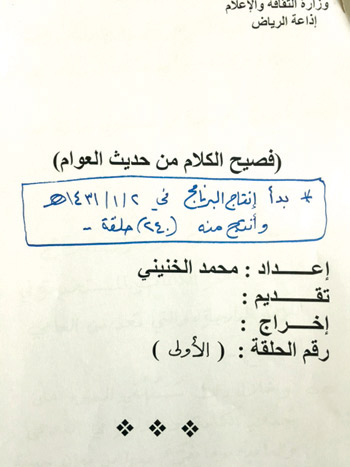 وزارة الثقافة والإعلام
إذاعة الرياض
(فصيح الكلام من حديث العوام)
* بدأ إنتاج البرنامج في ١٤٣١/١/٢هـ
وأنتج منه (٢٤٠) حلقة -
إعـــداد : محمد الخنيني
تقـــديم :
إخـــراج :
رقم الحلقة : ( الأولى )